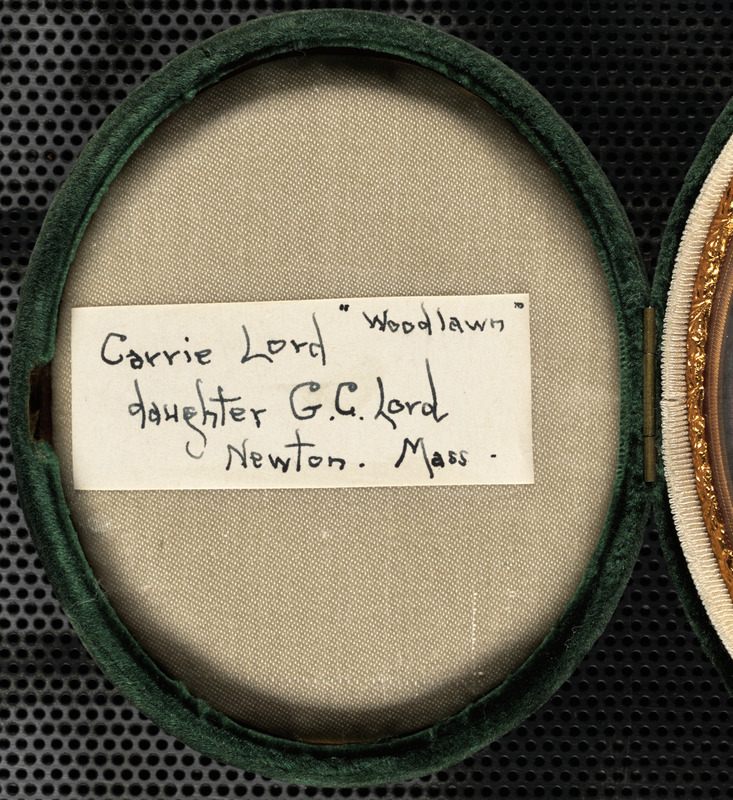 Carrie Lord "Woodlawn"
daughter G.C. Lord
Newton. Mass.